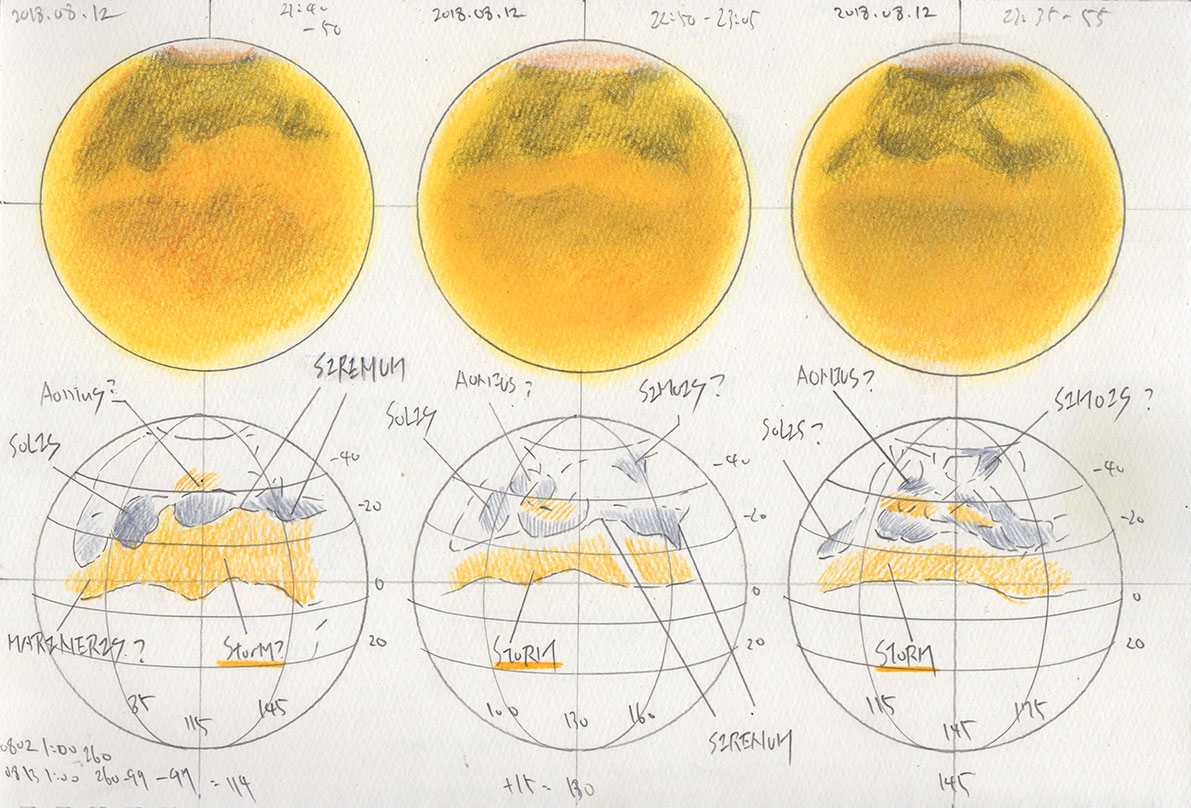 2018.08.12
21:40
-50
2018.08.12
22:50-23:05
2018.08.12
23:35-55
Aonius?
SIREMUM
SOLIS
-40
-20
0
20
MARINERIS?
Storm?
85
115
145
0802 1:00 260
0813 1:00 260-99 -97 = 114
AONIUS?
SIMOIS?
SOLIS
-40
-20
0
20
STORM
100
130
160
SIRENUM
+15 = 130
AONIUS?
SIMOIS?
SOLIS?
-40
-20
0
20
STORM
115
145
175
145